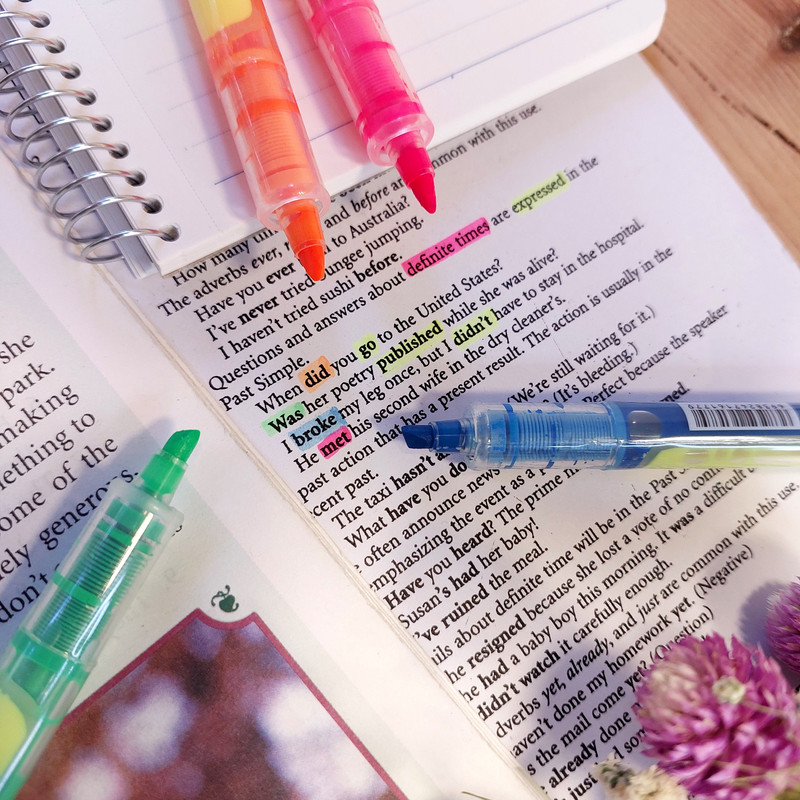 she
park.
making
ething to
ome of the
ely generous.
don't
and before are common with this use.
How many
The adverbs ever, to Australia?
Have you ever bungee jumping.
I've never tried
I haven't tried sushi before.
Questions and answers about definite times are expressed in the
Past Simple.
When did you go to the United States?
Was her poetry published while she was alive?
I broke my leg once, but I didn't have to stay in the hospital.
He met his second wife in the dry cleaner's.
past action that has a present result. The action is usually in the
cent past.
The taxi hasn't (We're still waiting for it.)
What have you do (It's bleeding.)
often announce news Perfect because the speaker
mphasizing the event as a
Have you heard? The prime
Susan's had her baby!
've ruined the meal.
ils about definite time will be in the Past
he resigned because she lost a vote of no
he had a baby boy this morning. It was a difficult
didn't watch it carefully enough.
dverbs yet, already, and just are common with this use.
aven't done my homework yet. (Negative)
s the mail come yet? (Question)
already done
just